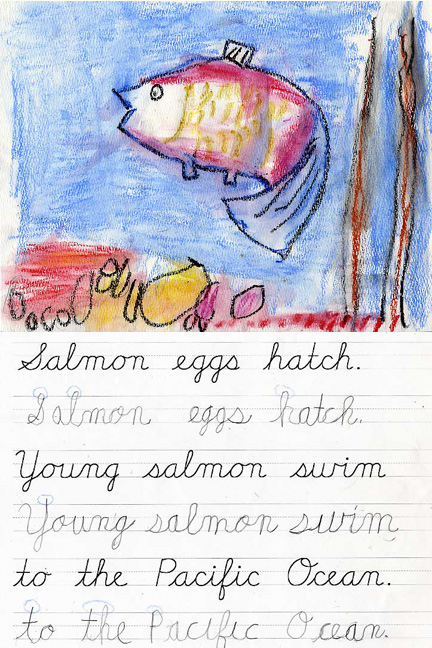 Salmon eggs hatch.
Salmon eggs hatch.
Young salmon swim
Young salmon swim
to the Pacific Ocean.
to the Pacific Ocean.